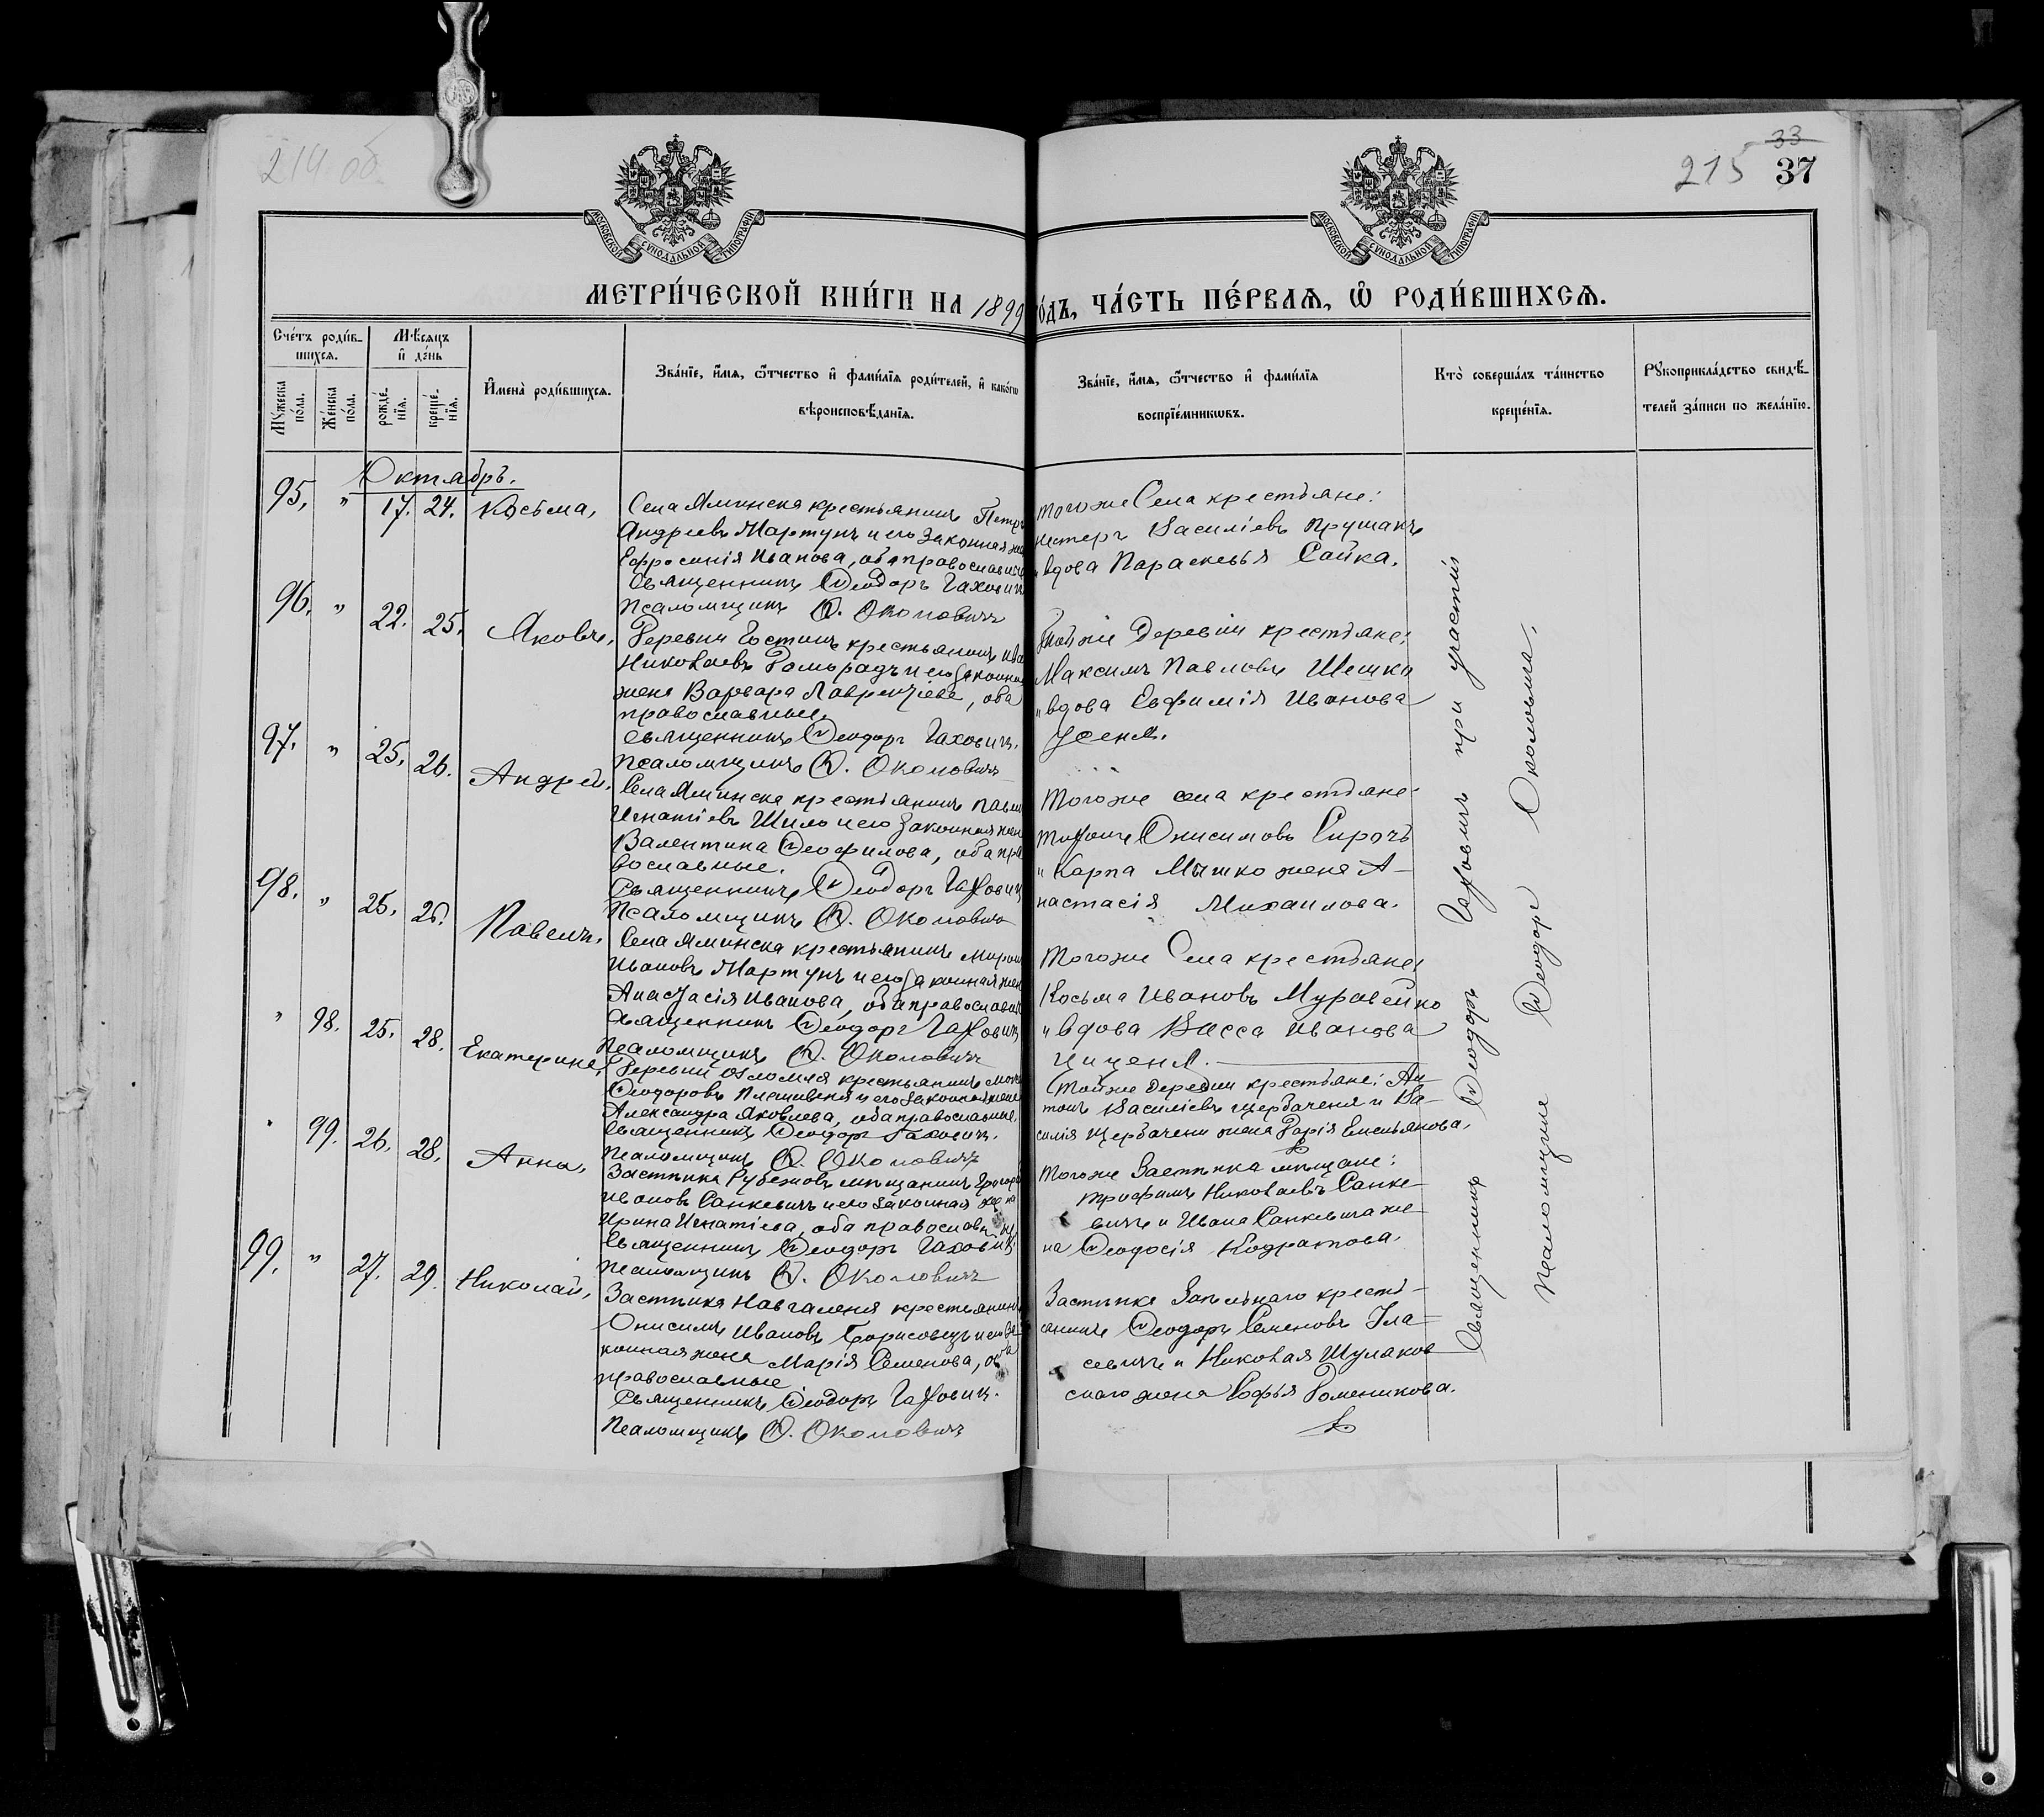 214 об
215
33
37
МОСКОВСКОЙ СѴНОДАЛЬНОЙ ТИПОГРАФІИ
МОСКОВСКОЙ СѴНОДАЛЬНОЙ ТИПОГРАФІИ
МЕТРИ́ЧЕСКОЙ КНИ́ГИ НА 1899 ГО́ДЪ, ЧА́СТЬ ПЕ́РВАЯ, Ѡ҆ РОДИ́ВШИХСЯ.
Сче́тъ роди́в-
шихся.
Мꙋжеска по́ла.
Же́нска по́ла.
Мѣсяцъ
и҆ де́нь
рожде́-
нїя.
креще́-
нїя.
И҆мена̀ роди́вшихся.
Зва́нїе, и҆́мя, ѻ҆́тчество и҆ фами́лїя роди́телей, и҆ како́гѡ
вѣроисповѣ́данїя.
Зва́нїе, и҆́мя, ѻ҆́тчество и҆ фами́лїя
воспрїе́мникѡвъ.
Кто̀ соверша́лъ та́инство
креще́нїя.
Рꙋкоприкла́дство свидѣ́-
телей за́писи по жела́нїю.
Октябрь.
95. " 17. 24. Косьма,
Села Яминска крестьянинъ Петръ
Андреевъ Мартунъ и его законная же
Ефросинія Иванова, оба православные
Священникъ Ѳеодоръ Гахович
Псаломщикъ Ѳ. Околовичъ
тогоже Села крестьяне:
Василіевъ Прушакъ
и вдова Параскевья Сайка.
96. " 22. 25. Яковъ,
Деревни крестьянинъ Ива
Николаевъ Доморадъ и его законная
жена Варвара Лаврентіева, оба
православные.
Священникъ Ѳеодоръ Гахович.
Псаломщикъ Ѳ. Околовичъ
Тойже деревни крестьяне:
Максимъ Павловъ Шешко
и вдова Евфимія Иванова
Усеня.
97. " 25. 26. Андрей,
Села Яминска крестьянинъ Павел
Игнатіевъ Шило и его законная жен
Валентина Ѳеофилова, оба пра
вославные.
Священникъ Ѳеодоръ Гахович
Псаломщикъ Ѳ. Околовичъ
Тогоже села крестьяне:
Онисимовъ Сирочъ
и Карпа Мышко жена А-
настасія Михаилова.
98. " 25. 26. Павелъ,
Села Яминска крестьянинъ Мирон
Ивановъ Мартунъ и его законная жен
Анастасія Иванова, оба православн
Священникъ Ѳеодоръ Гахович
Псаломщикъ Ѳ. Околовичъ
Тогоже Села крестьяне:
Косьма Ивановъ Муравейко
и вдова Васса Иванова
Циценя.
" 98. 25. 28. Екатерина,
Деревни крестьянинъ
Ѳеодоровъ и его законная жена
Александра Яковлева, оба православные.
Священникъ Ѳеодоръ Гахович.
Псаломщикъ Ѳ. Околовичъ
Тойже деревни крестьяне: Ан-
тонъ Василіевъ Щербаченя и Ва-
силія Щербачени жена Дарія Емельянова.
" 99. 26. 28. Анна,
Застѣнка Рубежовъ мѣщанинъ Григорій
Ивановъ Санкевичъ и его законная жена
Ирина Игнатіева, оба православны
Священникъ Ѳеодоръ Гахович.
Псаломщикъ Ѳ. Околовичъ
Тогоже Застѣнка мѣщане:
Трофимъ Николаевъ Санке-
вичъ и Ивана Санкевича же-
на Ѳеодосія Кодратова.
99. " 27. 29. Николай,
Застѣнка крестьянинъ
Онисимъ Ивановъ Борисовецъ и его за
конная жена Марія Семенова, оба
православные
Священникъ Ѳеодоръ Гахович.
Псаломщикъ Ѳ. Околовичъ
Застѣнка крестья-
нинъ Ѳеодоръ Семеновъ
и Николая Шулаков
скаго жена Софья Доменикова.
Священникъ Ѳеодоръ Гаховичъ при участіи
Псаломщика Ѳеодора Околовича.